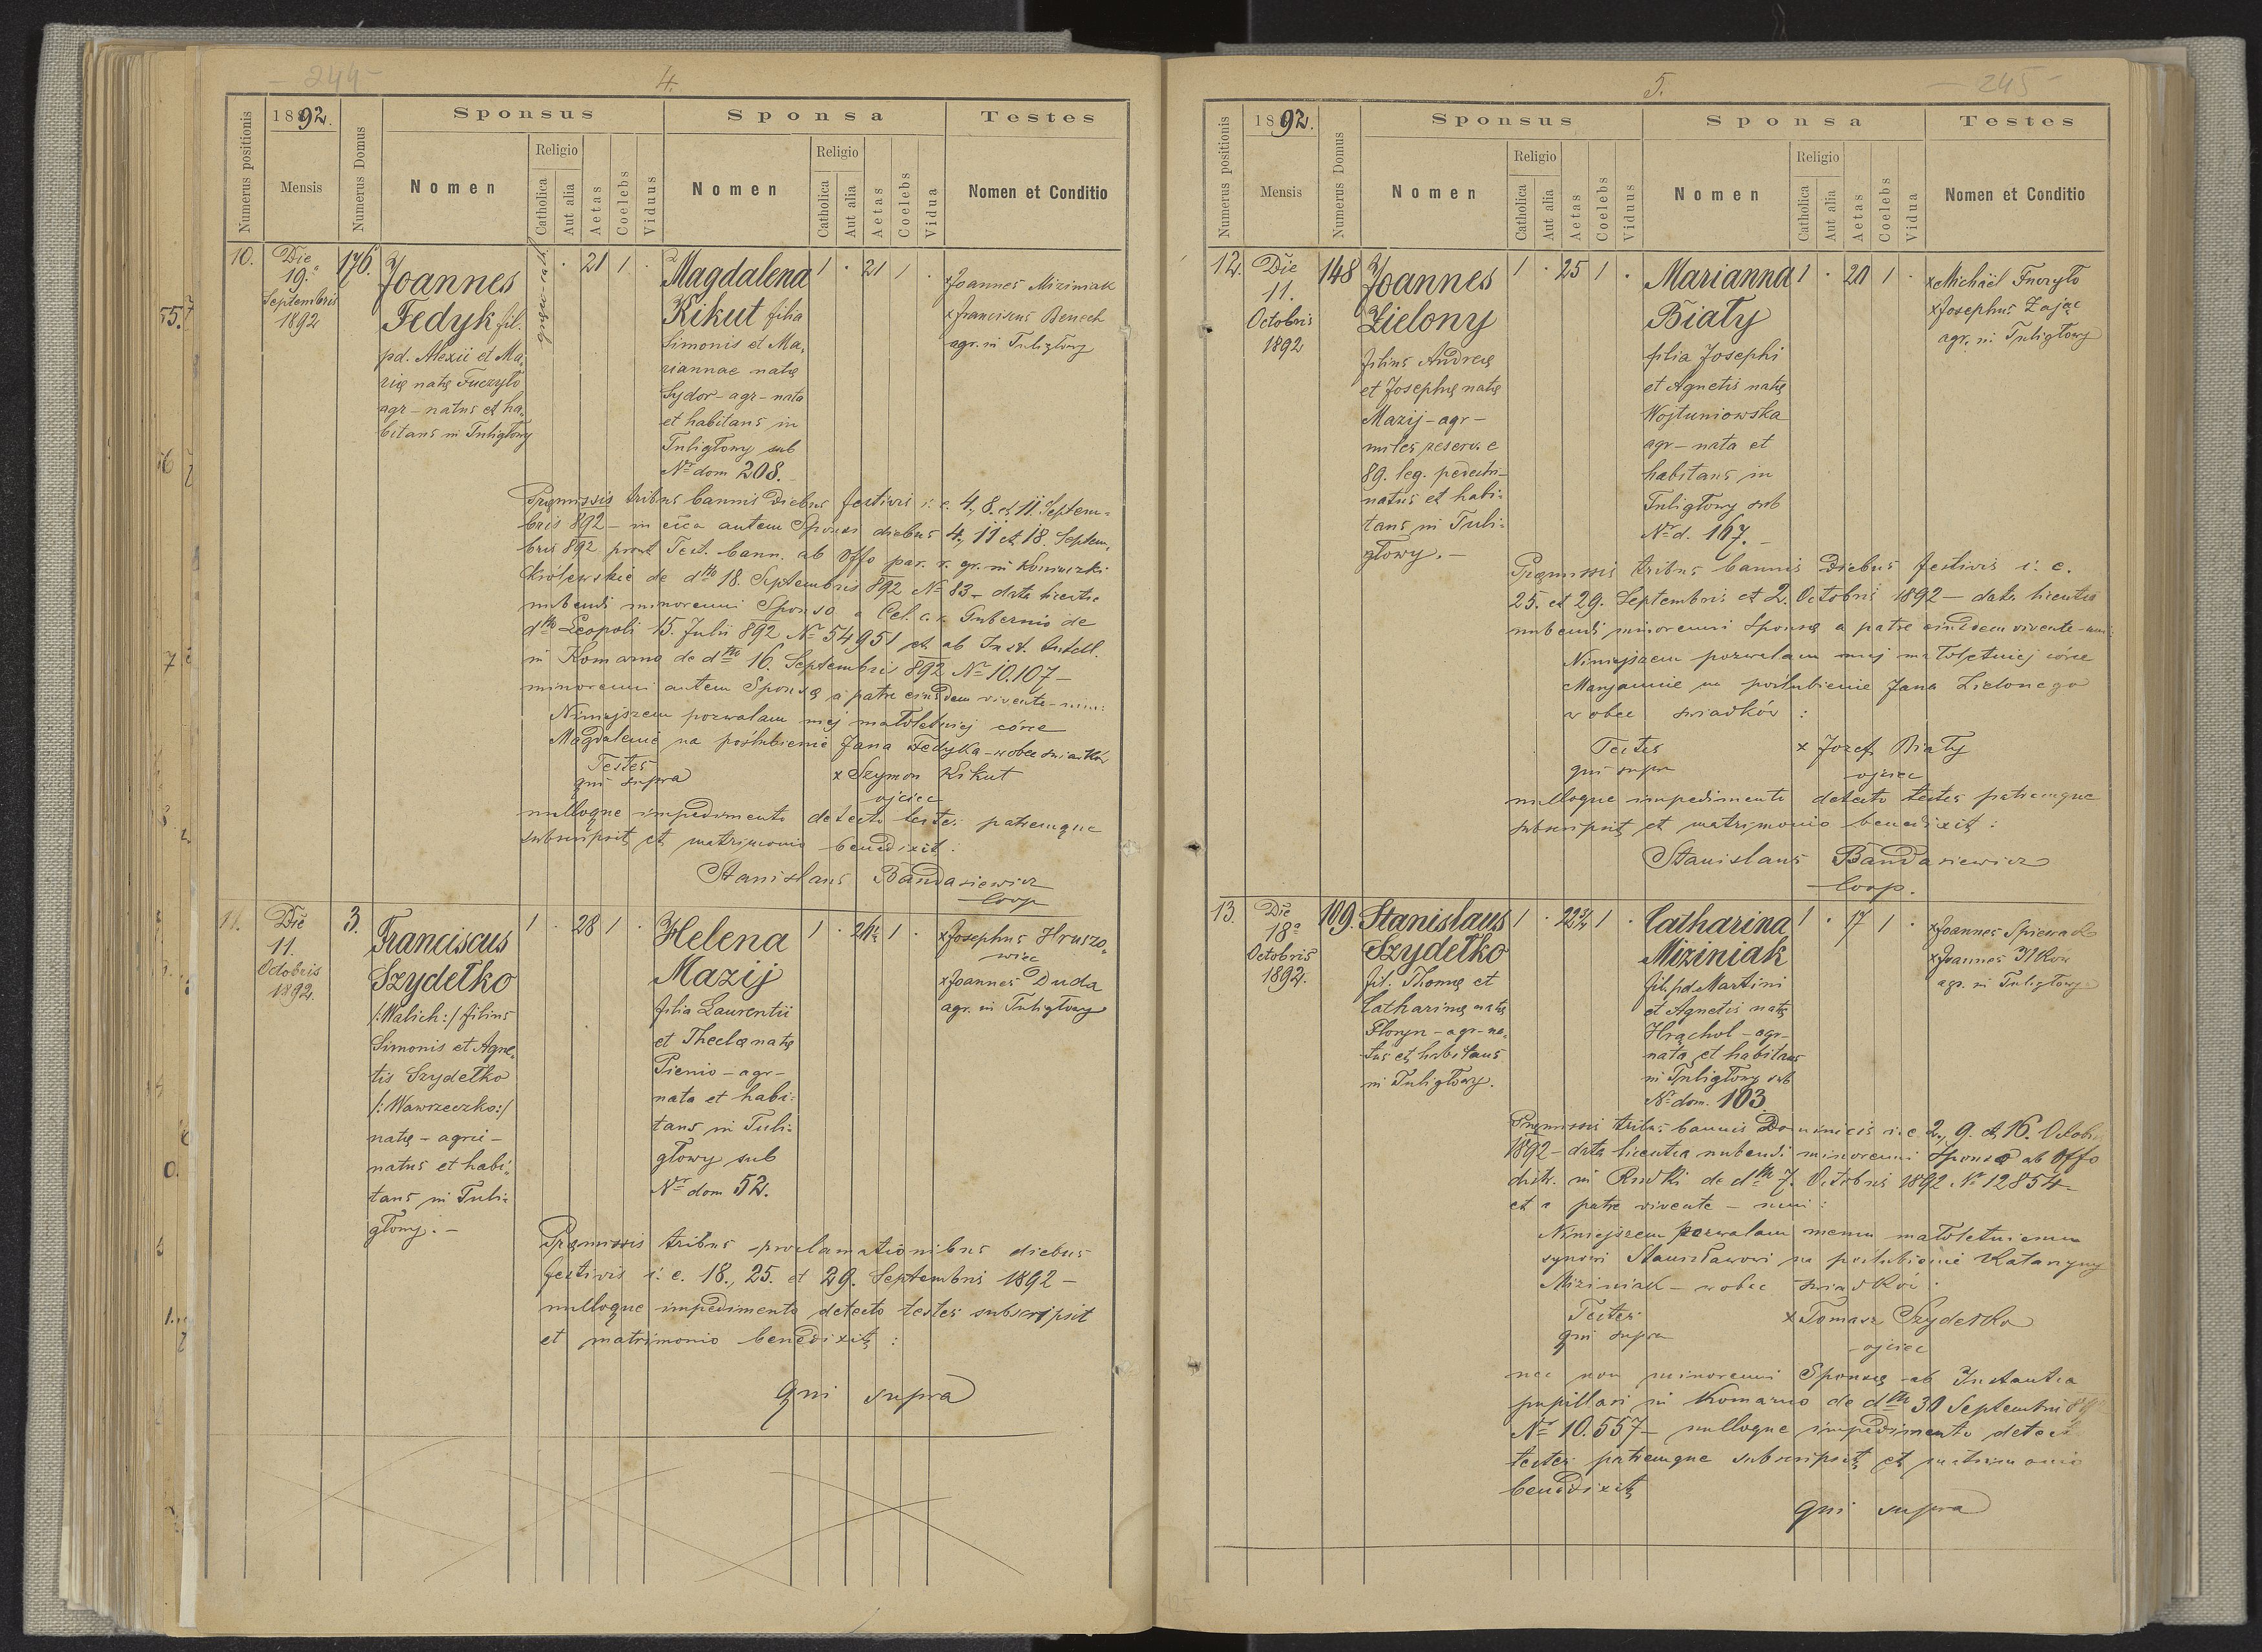 - 244 -
4.
Numerus positionis
1892.
Mensis
Numerus Domus
Sponsus
Nomen
Religio
Catholica
Aut alia
Aetas
Coelebs
Viduus
Sponsa
Nomen
Religio
Catholica
Aut alia
Aetas
Coelebs
Vidua
Testes
Nomen et Conditio
10.
Die
19.
Septembris
1892
176.
Joannes
Fedyk fil.
pd. Alexii et Ma,,
rię natę Fuczyło
agr - natus et ha,,
bitans in Tuligłowy
graeco-cath.
21 1
Magdalena
Kikut filia
Simonis et Ma,,
riannae natę
Sydor - agr - nata
et habitans in
Tuligłowy sub
Nr dom 208.
1 21 1
x Joannes Miziniak
x Franciscus Benech
agr. in Tuligłowy
Pręmissis tribus bannis diebus festivis i. e. 4, 8. et 11. Septem=
bris 892 - in ecca autem Sponsi diebus 4, 11 et 18. Septem,,
bris 892 prout Test. bann. ab Offo par. r. gr. in Koniuszki
Królewskie de dtto 18. Septembris 892 No 83 - data licentia
nubendi minorenni Sponso a Cel. c. r. Gubernio de
dtto Leopoli 15. Julii 892 No 54951 et ab Inst. tutell.
in Komarno de dtto 16. Septembris 892 No 10.107 -
minorenni autem Sponsę a patre eiusdem vivente - uni:
Niniejszem pozwalam mej małoletniej córce
Magdalenie na poślubienie Jana Fedyka - wobec świadków
Testes
qui supra
x Szymon Kikut
ojciec
nulloque impedimento detecto testes patremque
subscripsit et matrimonio benedixit:
Stanislaus Bandasiewicz
Coop
11.
Die
11.
Octobris
1892.
3.
Franciscus
Szydełko
/:Walich:/ filius
Simonis et Agne,,
tis Szydełko
/:Wawrzeczko:/
natę - agri -
natus et habi,,
tans in Tuli=
głowy. -
1 28 1
Helena
Mazij
filia Laurentii
et Theclę natę
Pienio - agr -
nata et habi=
tans in Tuli=
głowy sub
Nr dom 52.
1 24½ 1
x Josephus Hruszo,,
wiec
x Joannes Duda
agr. in Tuligłowy
Pręmissis tribus proclamationibus diebus
festivis i. e. 18., 25. et 29. Septembris 1892 -
nulloque impedimento detecto testes subscripsit
et matrimonio benedixit:
Qui supra
- 245 -
5.
Numerus positionis
1892.
Mensis
Numerus Domus
Sponsus
Nomen
Religio
Catholica
Aut alia
Aetas
Coelebs
Viduus
Sponsa
Nomen
Religio
Catholica
Aut alia
Aetas
Coelebs
Vidua
Testes
Nomen et Conditio
12.
Die
11.
Octobris
1892
148
Joannes
Zielony
filius Andreę
et Josephę natę
Mazij - agr -
miles reserv. e
89. leg. pedestr -
natus et habi=
tans in Tuli=
głowy. -
1 25 1
Marianna
Biały
filia Josephi
et Agnetis natę
Wojtuniowska
agr - nata et
habitans in
Tuligłowy sub
Nr d. 167. -
1 20 1
x Michaël Fuczyło
x Josephus Zając
agr. in Tuligłowy
Pręmissis tribus bannis diebus festivis i. e.
25. et 29. Septembris et 2. Octobris 1892 - data licentia
nubendi minorenni Sponsę a patre eiusdem vivente - uni:
Niniejszem pozwalam mej małoletniej córce
Maryannie na poślubienie Jana Zielonego
wobec świadków:
Testes
qui supra
x Jozef Biały
ojciec
nulloque impedimento detecto testes patremque
subscripsit et matrimonio benedixit:
Stanislaus Bandasiewicz
Coop.
13.
Die
18a
Octobris
1892.
109.
Stanislaus
Szydełko
fil. Thomę et
Catharinę natę
Floryn - agr - na,,
tus et habitans
in Tuligłowy.
1 22¾ 1
Catharina
Miziniak
fil. pd. Martini
et Agnetis natę
Hrąchol - agr -
nata et habitans
in Tuligłowy sub
Nr dom. 103
1 17 1
x Joannes Śpiewak
x Joannes
agr. in Tuligłowy
Pręmissis tribus bannis Dominicis i. e. 2., 9. et 16. Octobris
1892 - data licentia nubendi minorenni Sponso ab Offo
distr. in Rudki de dtto 7. Octobris 1892 No 12854 -
et a patre vivente - uni:
Niniejszem pozwalam memu małoletniemu
synowi Stanisławowi na poślubienie Katarzyny
Miziniak - wobec świadków:
Testes
qui supra
x Tomasz Szydełko
ojciec
nec non minorenni Sponsę ab Instantia
pupillari in Komarno de dtto 30 Septembris 892
No 10.557 - nulloque impedimento detecto
testes patremque subscripsit et matrimonio
benedixit
Qui supra